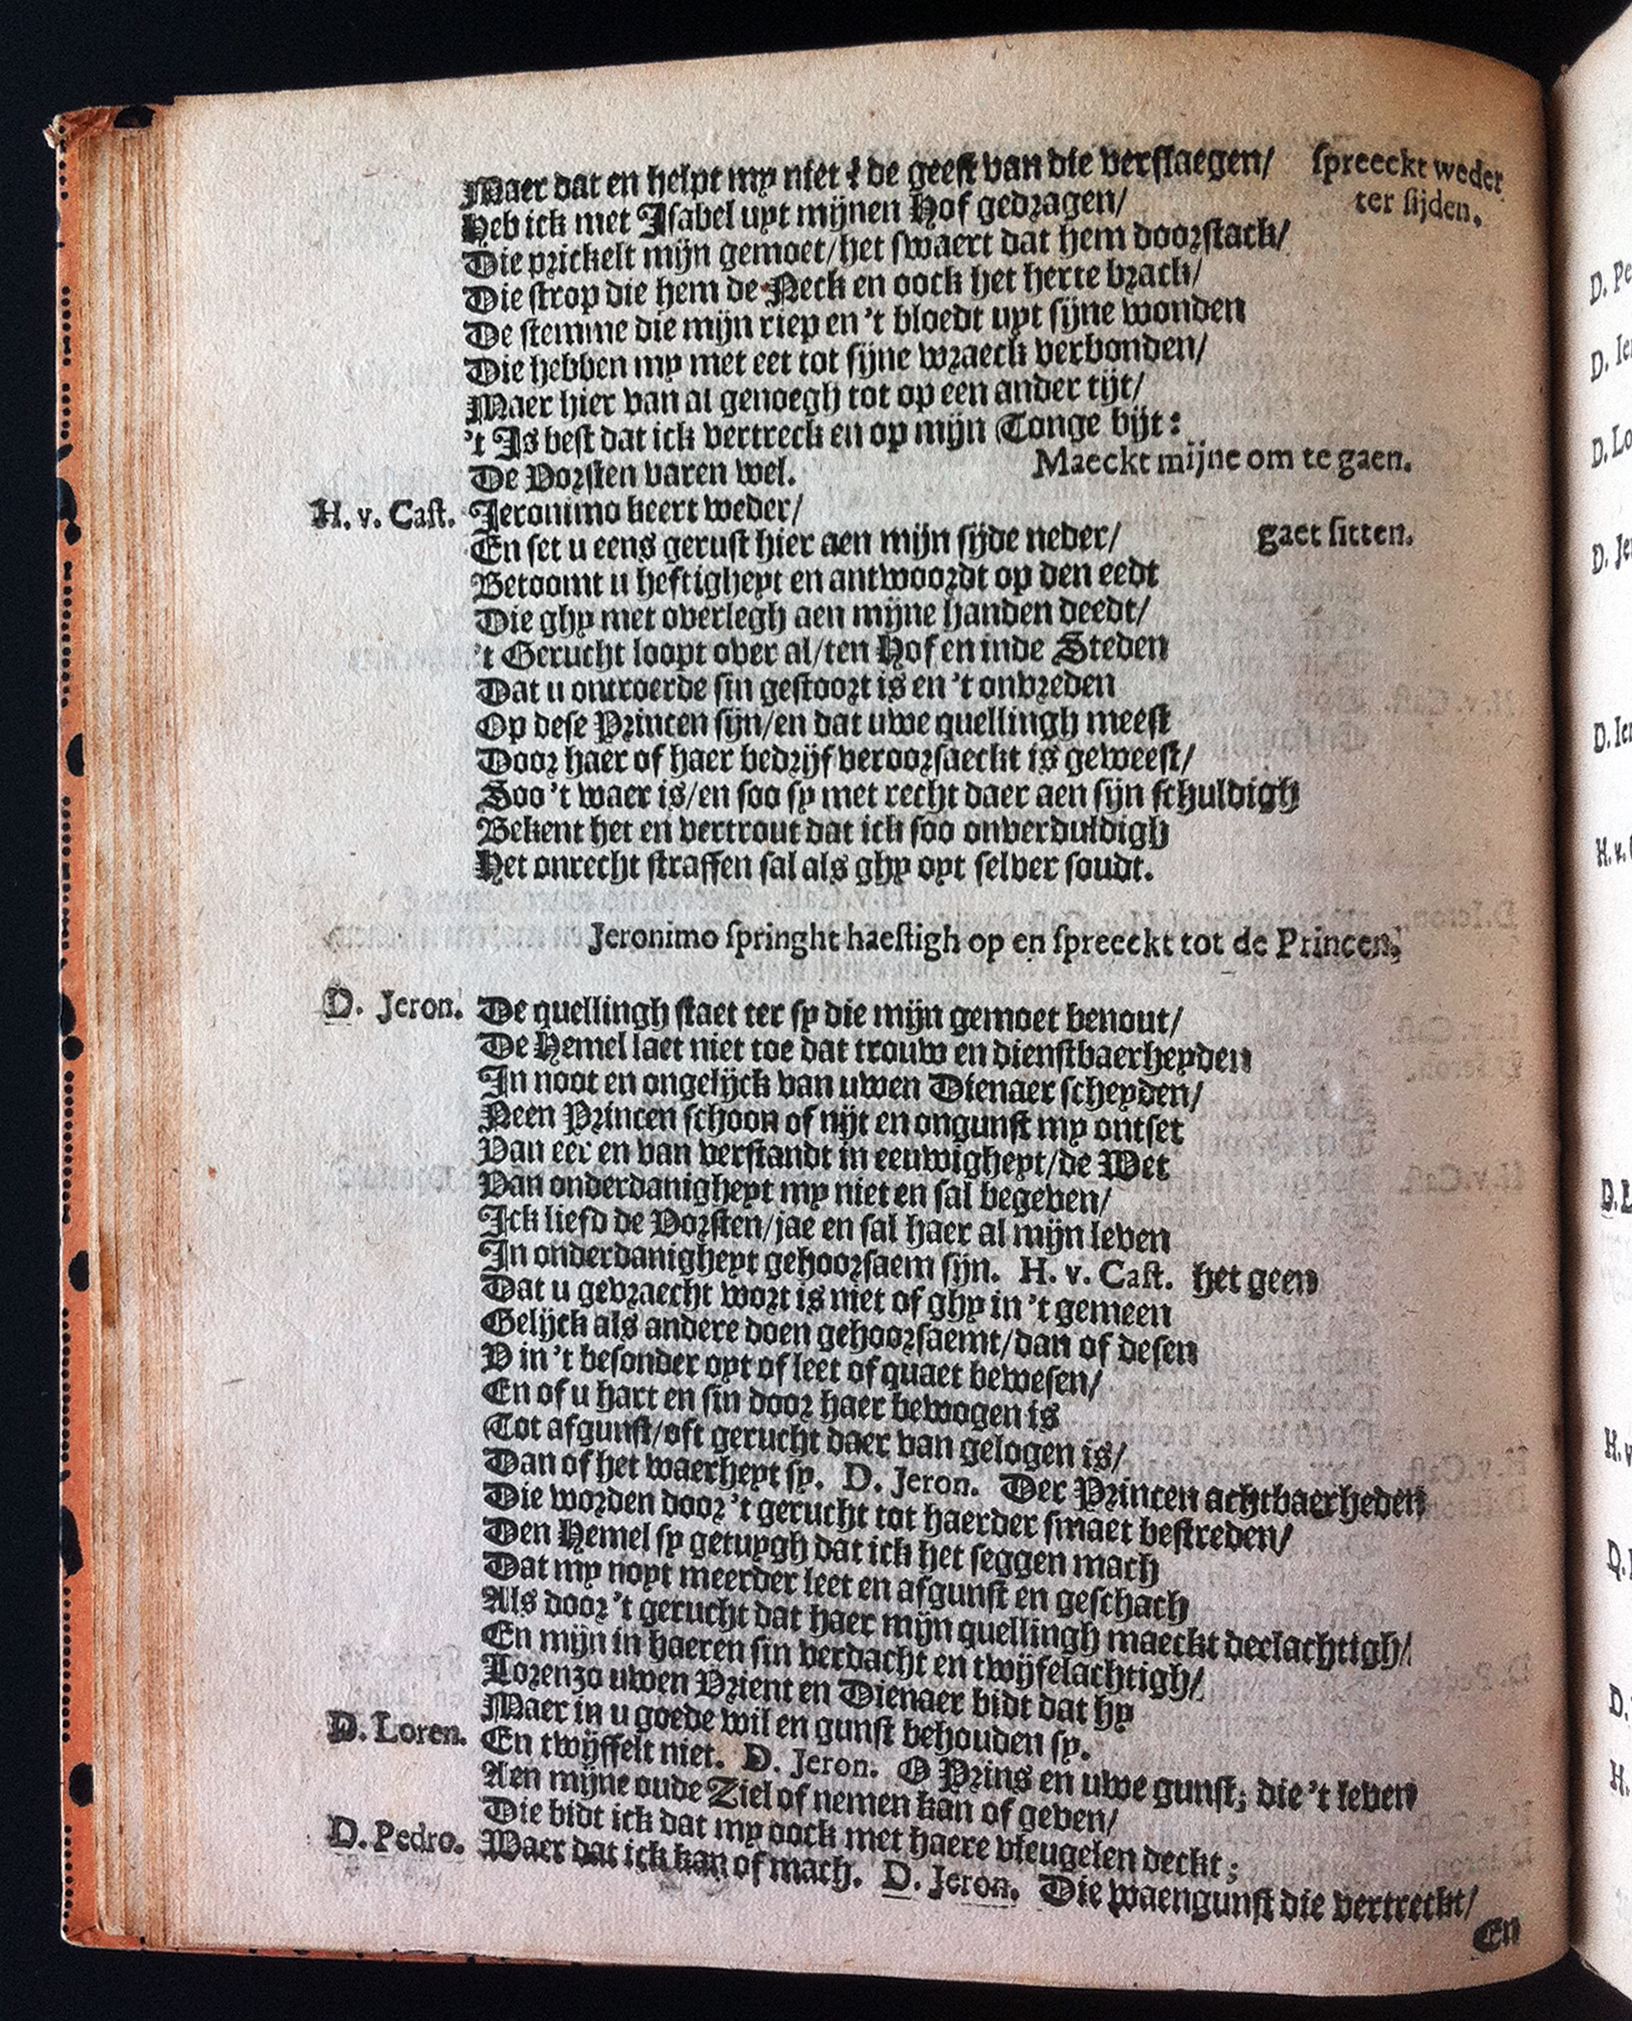 Maer dat en helpt my niet ? de geest van die verslaegen/ spreeckt weder
Heb ick met Isabel uyt mijnen Hof gedragen/ ter sijden.
Die prickelt mijn gemoet/het swaert dat hem doorstack/
Die strop die hem de Neck en oock het herte brack/
De stemme die mijn riep en 't bloedt uyt sijne wonden
Die hebben my met eet tot sijne wraeck verbonden/
Maer hier van al genoegh tot op een ander tijt/
't Is best dat ick vertreck en op mijn Tonge bijt:
De Vorsten varen wel. Maeckt mijne om te gaen.
H. v. Cast. Jeronimo keert weder/
En set u eens gerust hier aen mijn sijde neder/ gaet sitten.
Betoomt u heftigheyt en antwoordt op den eedt
Die ghy met overlegh aen mijne handen deedt/
't Gerucht loopt over al/ten Hof en inde Steden
Dat u ontroerde sin gestoort is en 't onvreden
Op dese Princen sijn/en dat uwe quellingh meest
Door haer of haer bedrijf veroorsaeckt is geweest/
Soo 't waer is/en soo sy met recht daer aen sijn schuldigh
Bekent het en vertrout dat ick soo onverduldigh
Het onrecht straffen sal als ghy oyt selver soudt.
Jeronimo springht haestigh op en spreeckt tot de Princen.
D. Jeron. De quellingh staet ter sy die mijn gemoet benout/
De Hemel laet niet toe dat trouw en dienstbaerheyden
In noot en ongelijck van uwen Dienaer scheyden/
Neen Princen schoon of nijt en ongunst my ontset
Van eer en van verstandt in eeuwigheyt/de Wet
Van onderdanigheyt my niet en sal begeven/
Ick liefd de Vorsten/jae en sal haer al mijn leven
In onderdanigheyt gehoorsaem sijn. H. v. Cast. het geen
Dat u gevraecht wort is niet of ghy in 't gemeen
Gelijck als andere doen gehoorsaemt/dan of desen
V in 't besonder oyt of leet of quaet bewesen/
En of u hart en sin door haer bewogen is
Tot afgunst/oft gerucht daer van gelogen is/
Dan of het waerheyt sy. D. Jeron. Der Princen achtbaerheden
Die worden door 't gerucht tot haerder smaet bestreden/
Den Hemel sy getuygh dat ick het seggen mach
Dat my noyt meerder leet en afgunst en geschach
Als door 't gerucht dat haer mijn quellingh maeckt deelachtigh/
En mijn in haeren sin verdacht en twijfelachtigh/
Lorenzo uwen Vrient en Dienaer bidt dat hy
Maer in u goede wil en gunst behouden sy.
D. Loren. En twijffelt niet. D. Jeron. O Prins en uwe gunst; die 't leven
Aen mijne oude Ziel of nemen kan of geven/
Die bidt ick dat my oock met haere vleugelen deckt;
D. Pedro. Maer dat ick kan of mach. D. Jeron. Die waengunst die vertreckt/
En